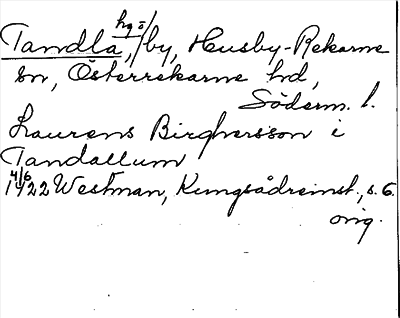 hg o/
Tandla, by, Husby-Rekarne
sn, Österrekarne hd,
Söderm. l.
Laurens Birghersson i
Tandallum
4/6
1422 Westman, Kungsådreinst., s. 6.
orig.